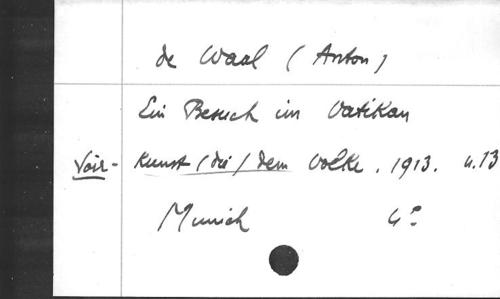 de Waal (Anton)
Ein Besuch im Vatikan
Voir - Kunst (die) dem Volke. 1913. n. 13
Munich 4°